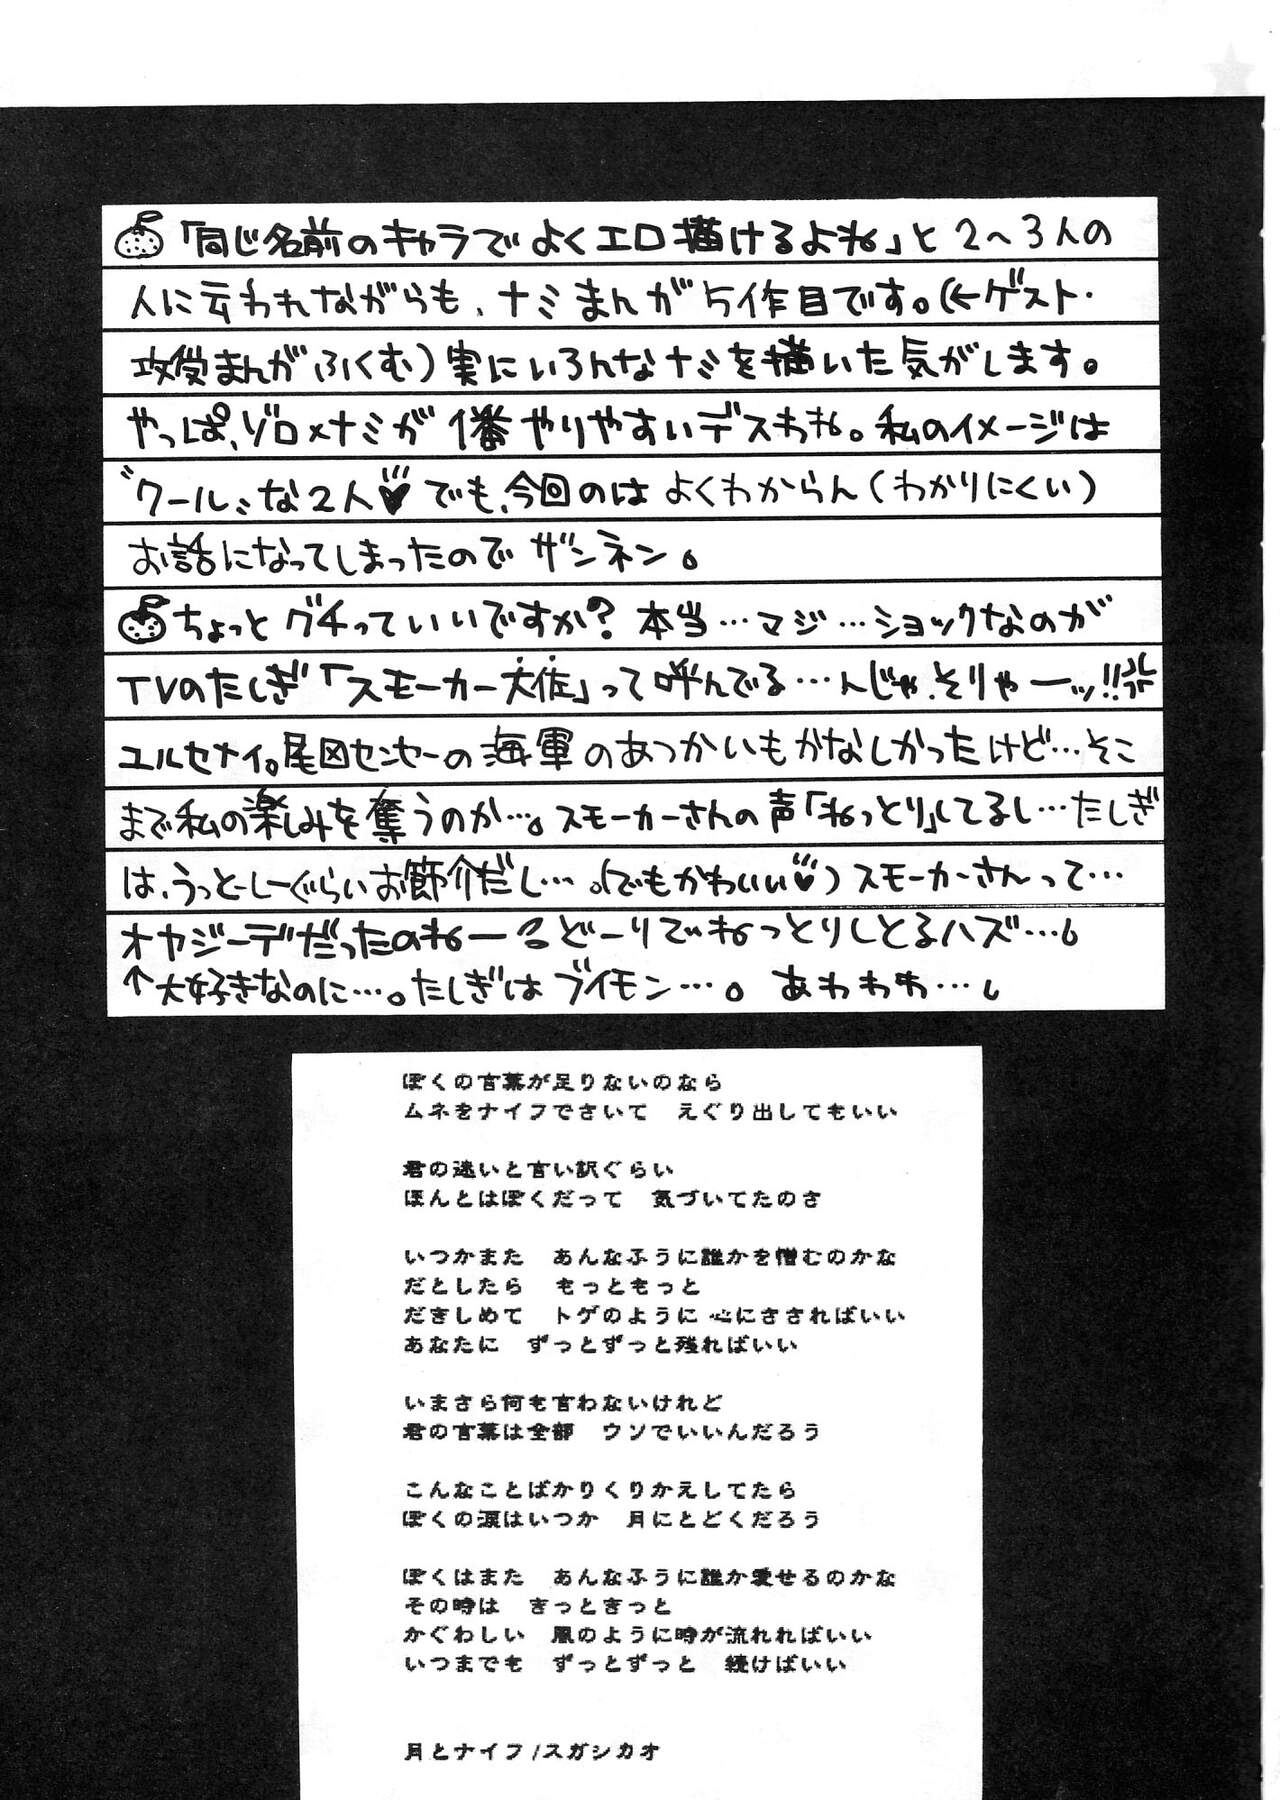 「同じ名前のキャラでよくエロ描けるよね」と2〜3人の
人に云われながらも、ナミまんが5作目です。(←ゲスト・
攻受まんがふくむ)実にいろんなナミを描いた気がします。
やっぱ、ゾロ×ナミが1番やりやすいデスわね。私のイメージは
〝クール〟な2人♥でも、今回のは よくわからん(わかりにくい)
お話になってしまったので ザンネン。
ちょっと グチっていいですか? 本当…マジ…ショックなのが
TVのたしぎ「スモーカー大佐」って呼んでる…んじゃ、そりゃーッ!!
ユルセナイ。尾田センセーの海軍のあつかいもかなしかったけど…そこ
まで私の楽しみを奪うのか…。スモーカーさんの声「ねっとり」してるし…たしぎ
は、うっとーしーぐらいお節介だし…。(でもかわいい♥)スモーカーさんって…
オヤジーデだったのねー どーりでねっとりしとるハズ…。
↑大好きなのに…。たしぎはブイモン…。 あわわわ…。
ぼくの言葉が足りないのなら
ムネをナイフでさいて　えぐり出してもいい
君の迷いと言い訳ぐらい
ほんとはぼくだって　気づいてたのさ
いつかまた　あんなふうに誰かを憎むのかな
だとしたら　もっともっと
だきしめて　トゲのように 心にささればいい
あなたに　ずっとずっと残ればいい
いまさら何も言わないけれど
君の言葉は全部　ウソでいいんだろう
こんなことばかりくりかえしてたら
ぼくの涙はいつか　月にとどくだろう
ぼくはまた　あんなふうに誰か愛せるのかな
その時は　きっときっと
かぐわしい　風のように時が流れればいい
いつまでも　ずっとずっと　続けばいい
月とナイフ/スガシカオ